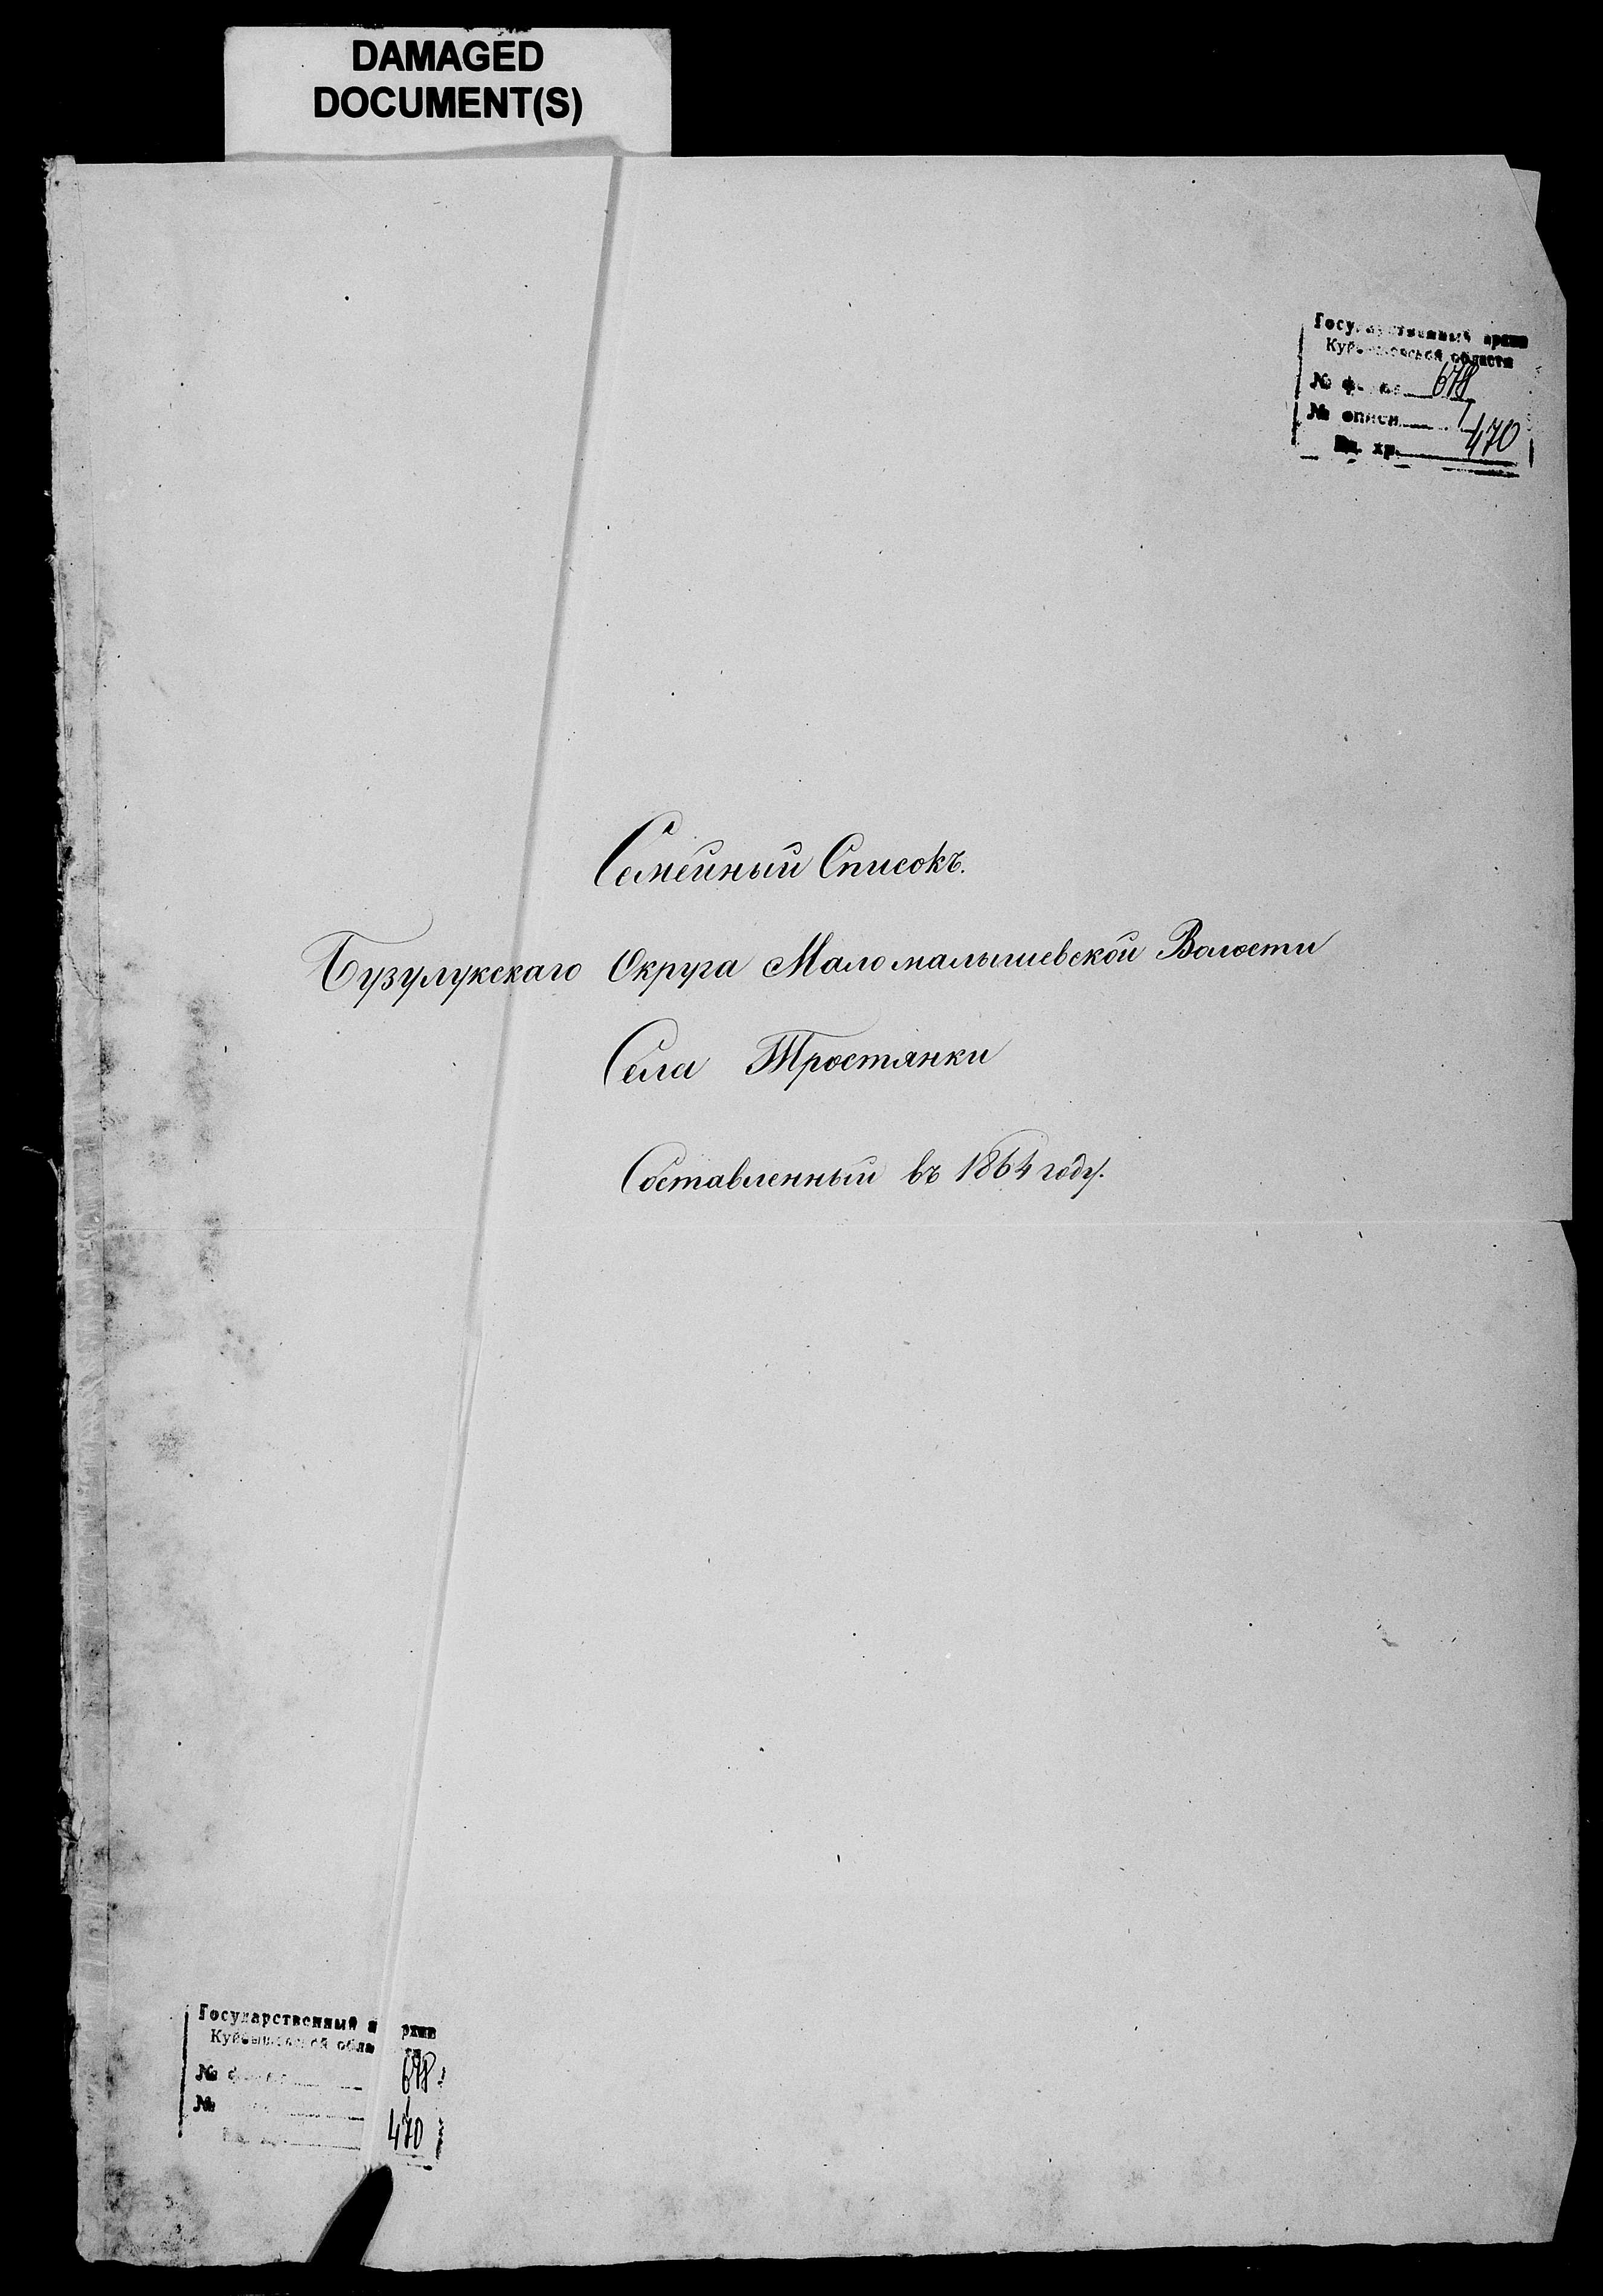 DAMAGED
DOCUMENT(S)
Государственный архив
Куйбышевской области
№ фонда 678
№ описи 1
Ед. хр. 470
Семейный Списокъ.
Бузулукскаго Округа Маломалышевской Волости
Села Тростянки
Составленный въ 1864 году.
Государственный архив
Куйбышевской области
№ фонда 678
№ 1
470